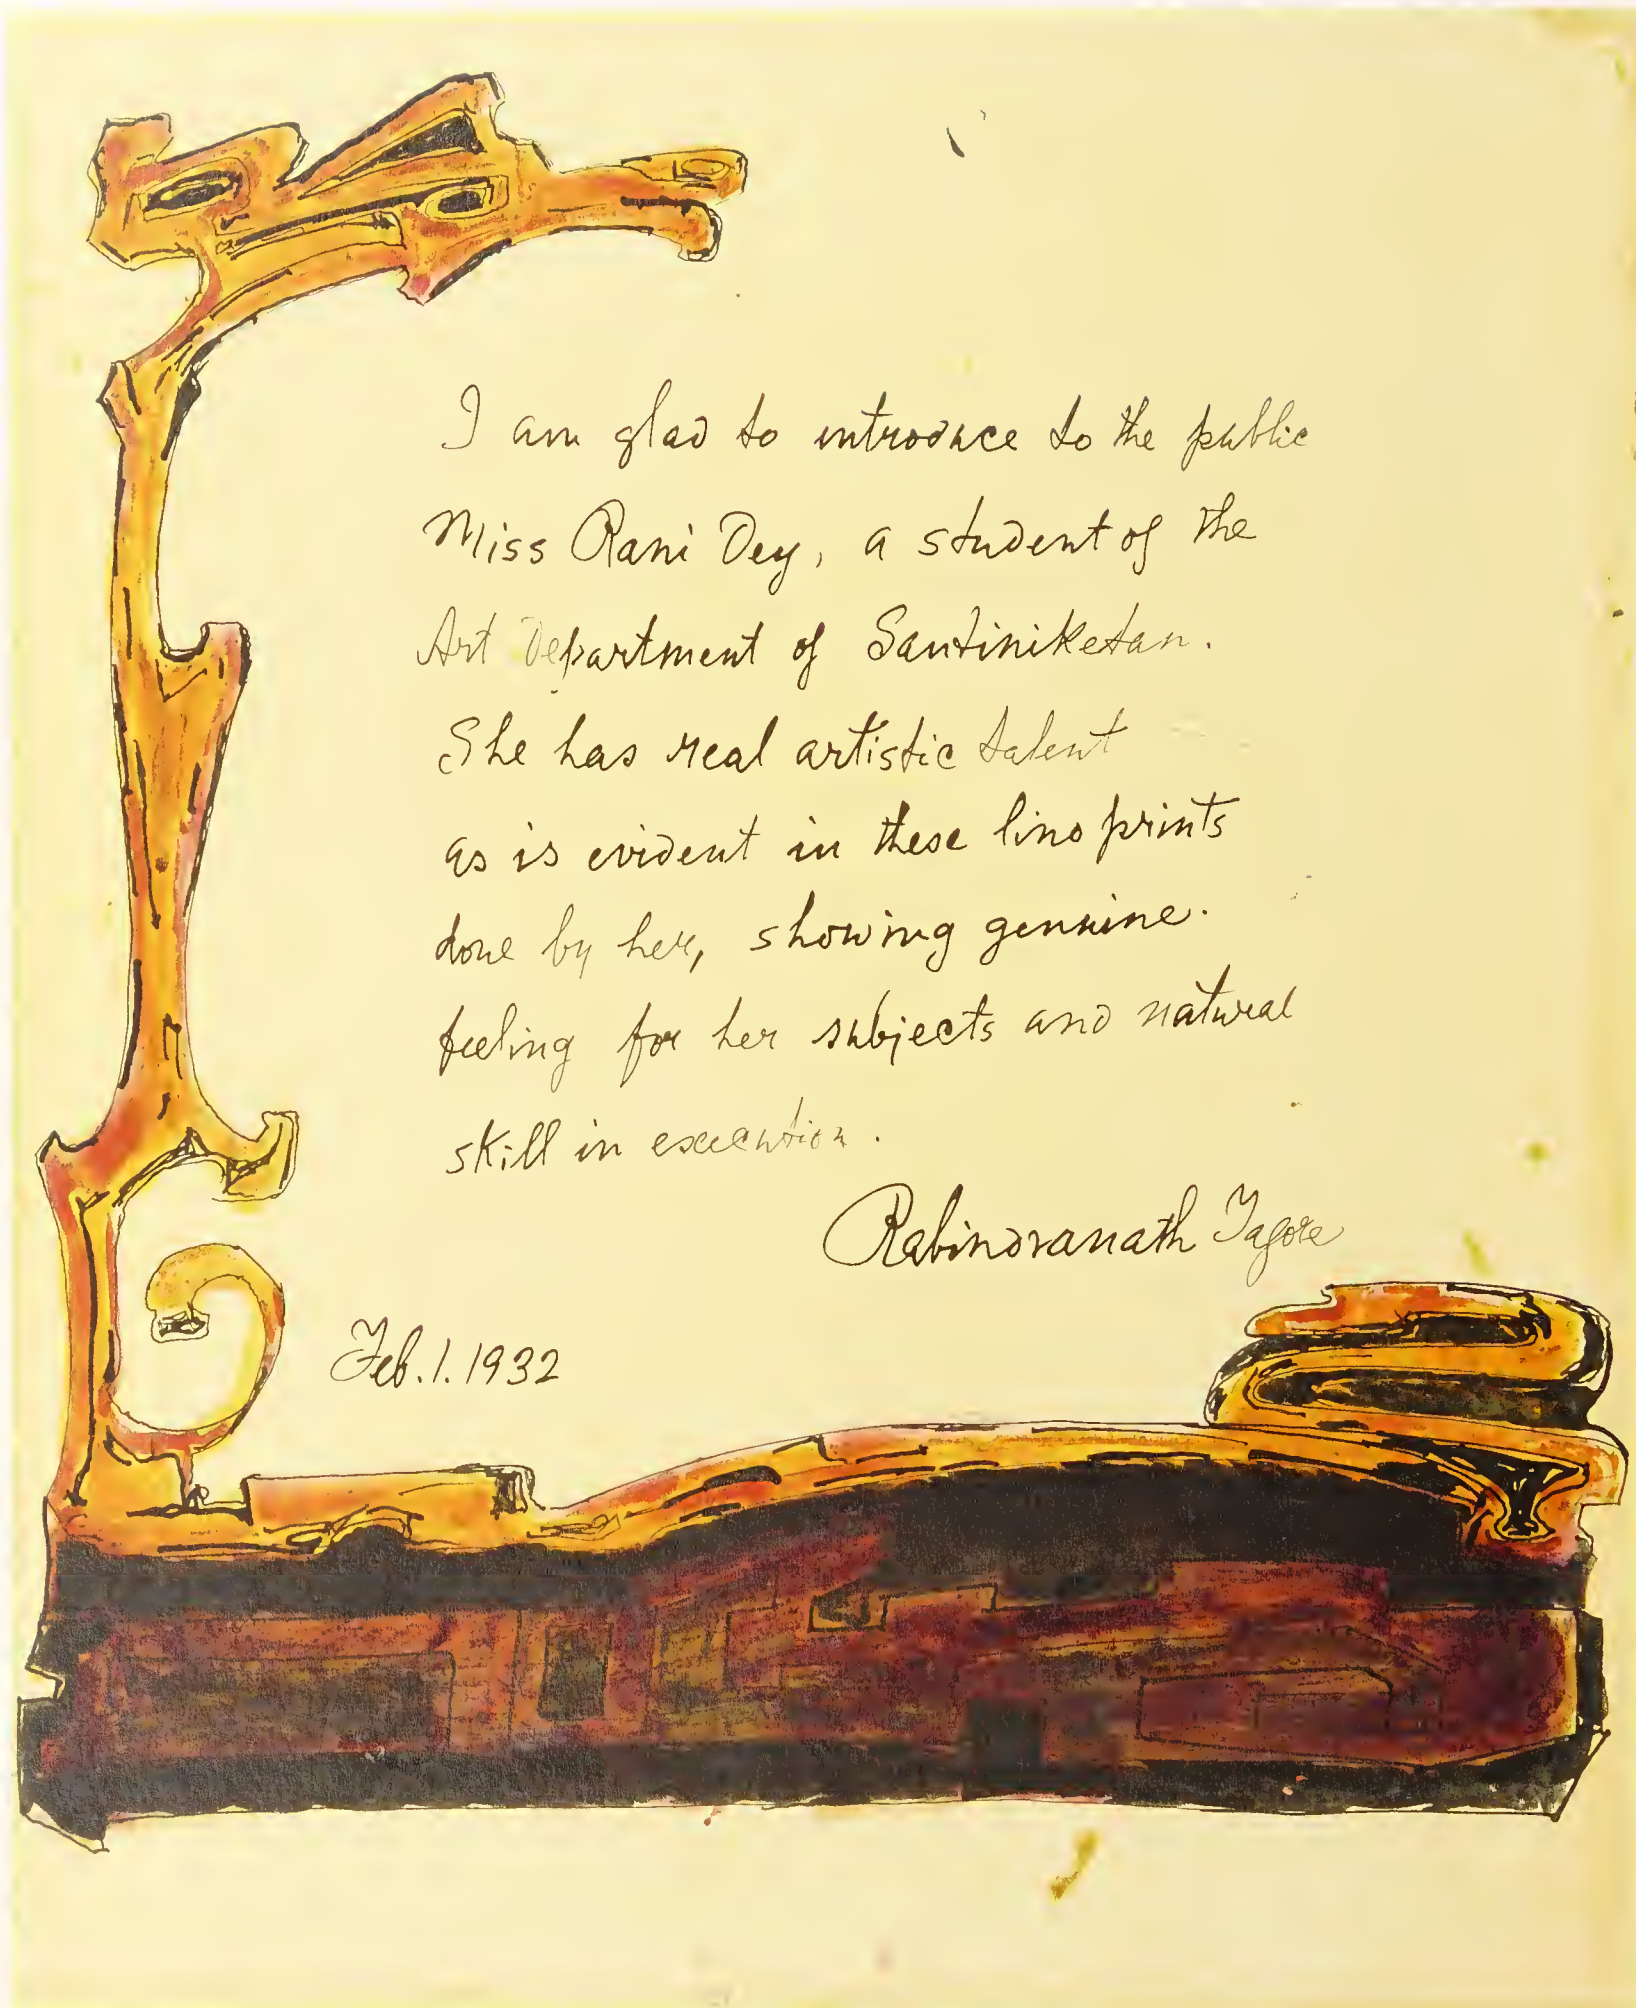 I am glad to introduce to the public
Miss Rani Dey, a student of the
Art Department of Santiniketan.
She has real artistic talent
as is evident in these lino prints
done by her, showing genuine.
feeling for her subjects and natural
skill in execution.
Rabindranath Tagore
Feb. 1. 1932